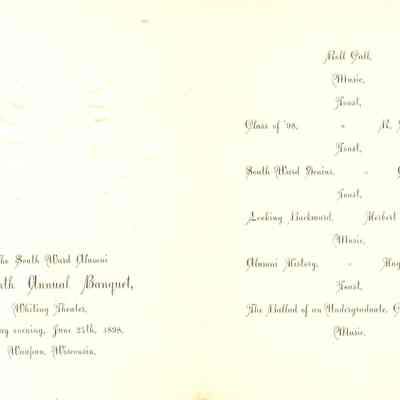 The South Ward Alumni
Annual Banquet,
Whiting Theater,
evening, June 24th, 1898,
Waupun, Wisconsin.
Roll Call,
Music,
Toast,
Class of '98, -
Toast,
South Ward Genius, -
Toast,
Looking Backward, Herbert
Music,
Alumni History, -
Toast,
The Ballad of an Undergraduate,
Music.